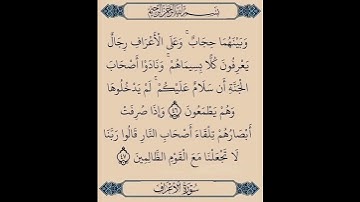 بِسْمِ اللَّهِ الرَّحْمَٰنِ الرَّحِيمِ
وَبَيْنَهُمَا حِجَابٌ ۚ وَعَلَى الْأَعْرَافِ رِجَالٌ
يَعْرِفُونَ كُلًّا بِسِيمَاهُمْ ۚ وَنَادَوْا أَصْحَابَ
الْجَنَّةِ أَن سَلَامٌ عَلَيْكُمْ ۚ لَمْ يَدْخُلُوهَا
وَهُمْ يَطْمَعُونَ ٤٦ وَإِذَا صُرِفَتْ
أَبْصَارُهُمْ تِلْقَاءَ أَصْحَابِ النَّارِ قَالُوا رَبَّنَا
لَا تَجْعَلْنَا مَعَ الْقَوْمِ الظَّالِمِينَ ٤٧
سُورَةُ الْأَعْرَافِ